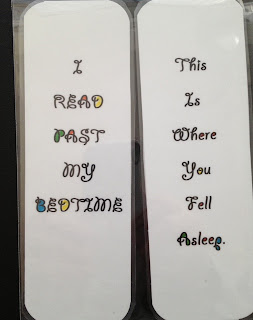 I
READ
PAST
MY
BEDTIME
This
Is
Where
You
Fell
Asleep.